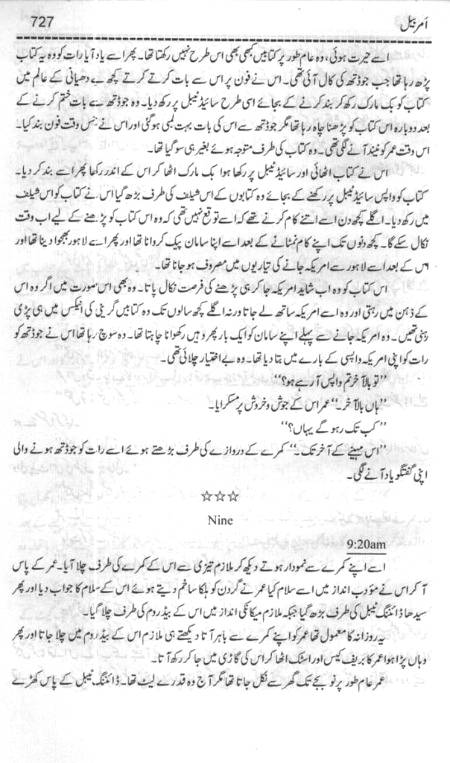 727 امر بیل
اسے حیرت ہوئی، وہ عام طور پر کتابیں کبھی بھی اس طرح نہیں رکھتا تھا۔ پھر اسے یاد آیا رات کو وہ یہ کتاب
پڑھ رہا تھا جب جوڈتھ کی کال آئی تھی۔ اس نے فون پر اس سے بات کرتے کرتے کچھ بے دھیانی کے عالم میں
کتاب کو بک مارک رکھ کر بند کرنے کے بجائے اسی طرح سائیڈ ٹیبل پر رکھ دیا۔ وہ جوڈتھ سے بات ختم کرنے کے
بعد دوبارہ اس کتاب کو پڑھنا چاہ رہا تھا مگر جوڈتھ سے اس کی بات بہت لمبی ہو گئی اور اس نے جس وقت فون بند کیا۔
اس وقت عمر کو نیند آنے لگی تھی۔ وہ کتاب کی طرف متوجہ ہوئے بغیر ہی سو گیا تھا۔
اس نے کتاب اٹھائی اور سائیڈ ٹیبل پر رکھا ہوا بک مارک اٹھا کر اس کے اندر رکھا پھر اسے بند کر دیا۔
کتاب کو واپس سائیڈ ٹیبل پر رکھنے کے بجائے وہ کتابوں کے اس شیلف کی طرف بڑھ گیا اس نے کتاب کو اس شیلف
میں رکھ دیا۔ اگلے کچھ دن اسے اتنے کام کرنے تھے کہ اسے توقع نہیں تھی کہ وہ اس کتاب کو پڑھنے کے لیے اب وقت
نکال سکے گا۔ کچھ دنوں تک اپنے کام نمٹانے کے بعد اسے اپنا سامان پیک کروانا تھا اور پھر اسے لاہور بھجوا دینا تھا اور
اس کے بعد اسے لاہور سے امریکہ جانے کی تیاریوں میں مصروف ہو جانا تھا۔
اس کتاب کو وہ اب شاید امریکہ جا کر ہی پڑھنے کی فرصت نکال پاتا۔ وہ بھی اس صورت میں اگر وہ اس
کے ذہن میں رہتی اور وہ اسے امریکہ ساتھ لے جاتا ورنہ اگلے کچھ سالوں تک وہ کتابیں گرینی کی انیکس میں ہی پڑی
رہنی تھیں۔ وہ امریکہ جانے سے پہلے اپنے سامان کو ایک بار پھر وہیں رکھوانا چاہتا تھا۔ وہ سوچ رہا تھا اس نے جوڈتھ کو
رات کو اپنی امریکہ واپسی کے بارے میں بتا دیا تھا۔ وہ بے اختیار چلائی تھی۔
”تو بالآخر تم واپس آ رہے ہو؟“
”ہاں بالآخر۔“ عمر اس کے جوش و خروش پر مسکرایا۔
”کب تک رہو گے یہاں؟“
”اس مہینے کے آخر تک۔“ کمرے کے دروازے کی طرف بڑھتے ہوئے اسے رات کو جوڈتھ ہونے والی
اپنی گفتگو یاد آنے لگی۔
☆☆☆
Nine
9:20am
اسے اپنے کمرے سے نمودار ہوتے دیکھ کر ملازم تیزی سے اس کے کمرے کی طرف چلا آیا۔ عمر کے پاس
آ کر اس نے مؤدب انداز میں اسے سلام کیا عمر نے گردن کو ہلکا سا خم دیتے ہوئے اس کے سلام کا جواب دیا اور پھر
سیدھا ڈائننگ ٹیبل کی طرف بڑھ گیا جبکہ ملازم میکانکی انداز میں اس کے بیڈروم کی طرف چلا گیا۔
یہ روزانہ کا معمول تھا عمر کو اپنے کمرے سے باہر آتا دیکھتے ہی ملازم اس کے بیڈروم میں چلا جاتا اور پھر
وہاں پڑا ہوا عمر کا بریف کیس اور اسٹک اٹھا کر اس کی گاڑی میں جا کر رکھ آتا۔
عمر عام طور پر نو بجے تک گھر سے نکل جاتا تھا مگر آج وہ قدرے لیٹ تھا۔ ڈائننگ ٹیبل کے پاس کھڑے